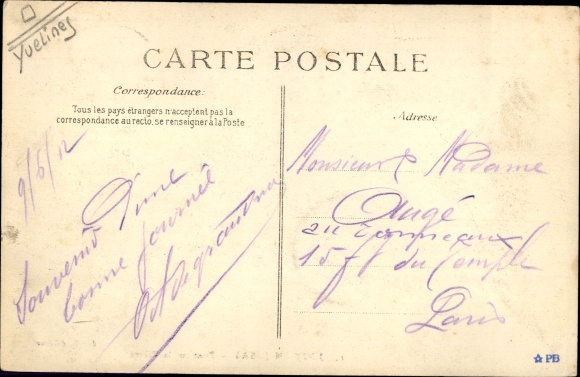 Yvelines
CARTE POSTALE
Correspondance:
Tous les pays étrangers n'acceptent pas la
correspondance au recto, se renseigner à la Poste
Adresse
9/6/12
Souvenir d'une
bonne journée
Monsieur & Madame
Augé
15 f du Temple
Paris
PB